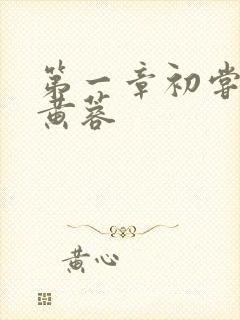 第一章初尝
黄蓉
黄心